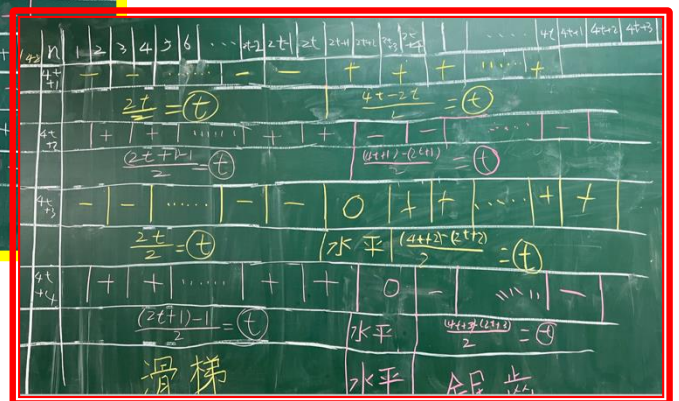 n 1 2 3 4 5 6 ...... 2t-2 2t-1 2t 2t+1 2t+2 2t+3 2t+4 ..... 4t 4t+1 4t+2 4t+3
4t+1 - - ...... - - + + + + ..... +
2t/2 = t (4t-2t)/2 = t
4t+2 + + ...... + + - - ..... -
((2t+1)-1)/2 = t ((4t+1)-(2t+1))/2 = t
4t+3 - - ...... - - 0 + + ..... + +
2t/2 = t 水平 ((4t+2)-(2t+2))/2 = t
+ + ...... + + 0 - ..... -
((2t+1)-1)/2 = t 水平 = t
滑梯 水平